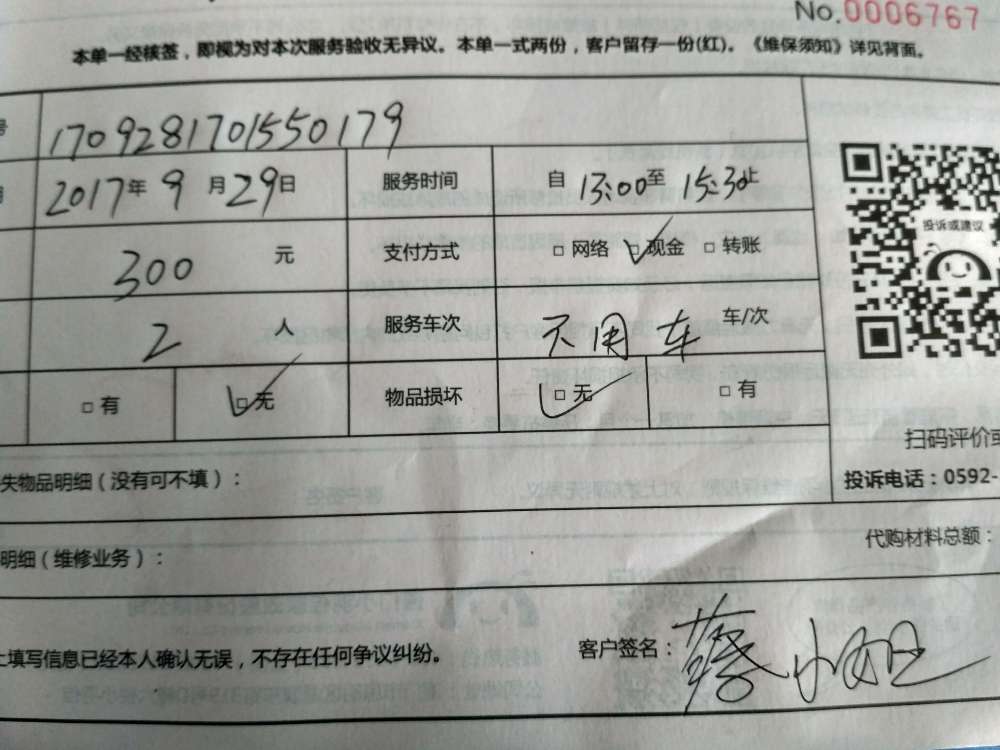 No.0006767
本单一经核签，即视为对本次服务验收无异议。本单一式两份，客户留存一份(红)。《维保须知》详见背面。
号 1709281701550179
2017年 9 月 29 日 服务时间 自 13:00 至 15:30 止
300 元 支付方式 □ 网络 □ 现金 □ 转账
投诉或建议
2 人 服务车次 不用车 车/次
□ 有 □ 无 物品损坏 □ 无 □ 有
扫码评价或
失物品明细（没有可不填）：
投诉电话：0592-
代购材料总额：
明细（维修业务）：
上填写信息已经本人确认无误，不存在任何争议纠纷。 客户签名：蔡小